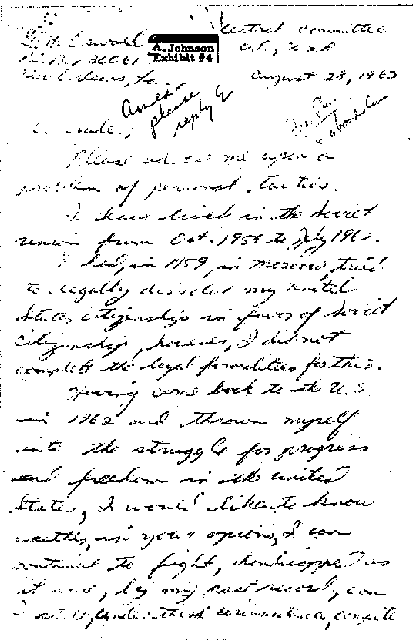 L. H. Oswald
P.O. Box 30061
New Orleans, La.
A. Johnson
Exhibit #4
Central Committee
C.P., U.S.A
August 28, 1963
please
reply
Comrades;
Please advise me upon a
problem of personal tactics.
I have lived in the Soviet
Union from Oct. 1959 to July 1962.
I had, in 1959, in Moscow, tried
to legally dissolve my United
States citizenship in favor of Soviet
citizenship, however, I did not
complete the legal formalities for this.
Having come back to the U.S.
in 1962 and thrown myself
into the struggle for progress
and freedom in the United
States, I would like to know
weather, in your opinion, I can
continue to fight, handicapped as
it were, by my past record, can
I still, under these circumstances, compete